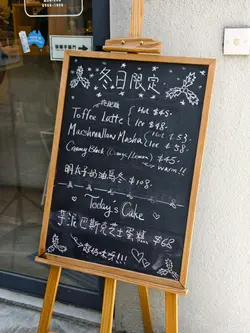 冬日限定
太妃糖
Toffee Latte { Hot $45.
Ice $48.
Marshmallow Mocha { Hot $53.
Ice $58.
Creamy Black (Orange/Lemon) $45.
warm!!
明太子奶油烏冬 $108.
Today's Cake
芋泥巴斯克芝士蛋糕 $68